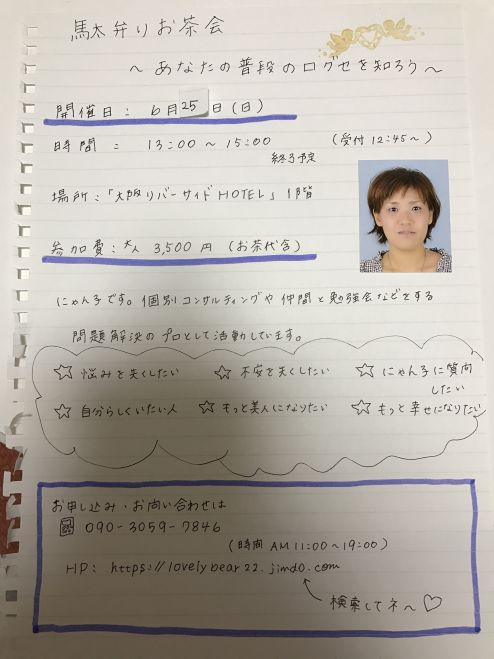 馬太弁りお茶会
～あなたの普段の口グセを知ろう～
開催日：6月25日(日)
時間：13:00～15:00 (受付12:45～)
終了予定
場所：「大阪リバーサイドHOTEL」1階
参加費：大人 3,500円 (お茶代含)
にゃん子です。個別コンサルティングや仲間と勉強会などをする
問題解決のプロとして活動しています。
☆ 悩みを失くしたい ☆ 不安を失くしたい ☆ にゃん子に質問したい
☆ 自分らしくいたい人 ☆ もっと美人になりたい ☆ もっと幸せになりたい
お申し込み・お問い合わせは
090-3059-7846
(時間 AM11:00～19:00)
HP: https://lovelybear22.jimdo.com
検索してネ～♡